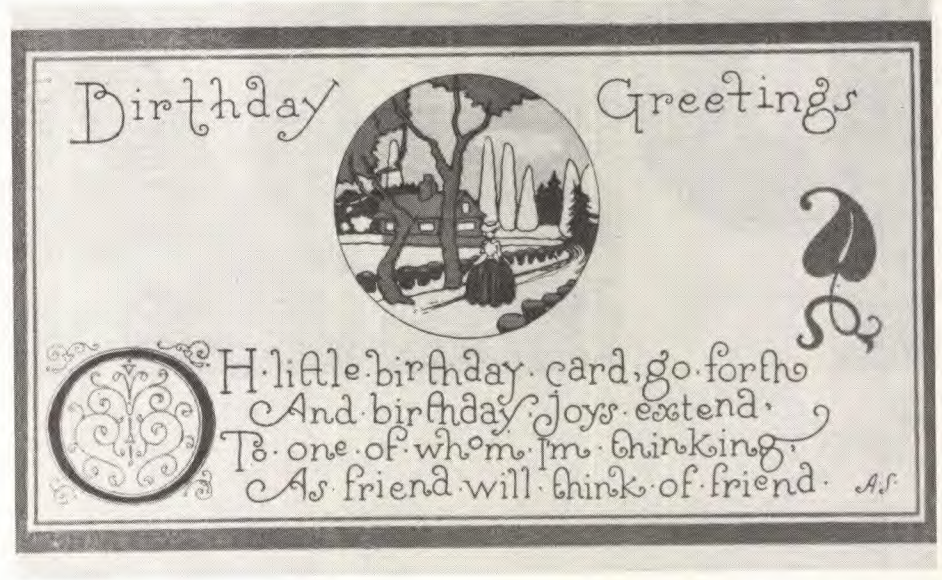 Birthday Greetings
OH·little·birthday·card, go·forth
And·birthday·joys·extend·
To·one·of·whom·I'm·thinking·
As·friend·will·think·of·friend·
A.S.